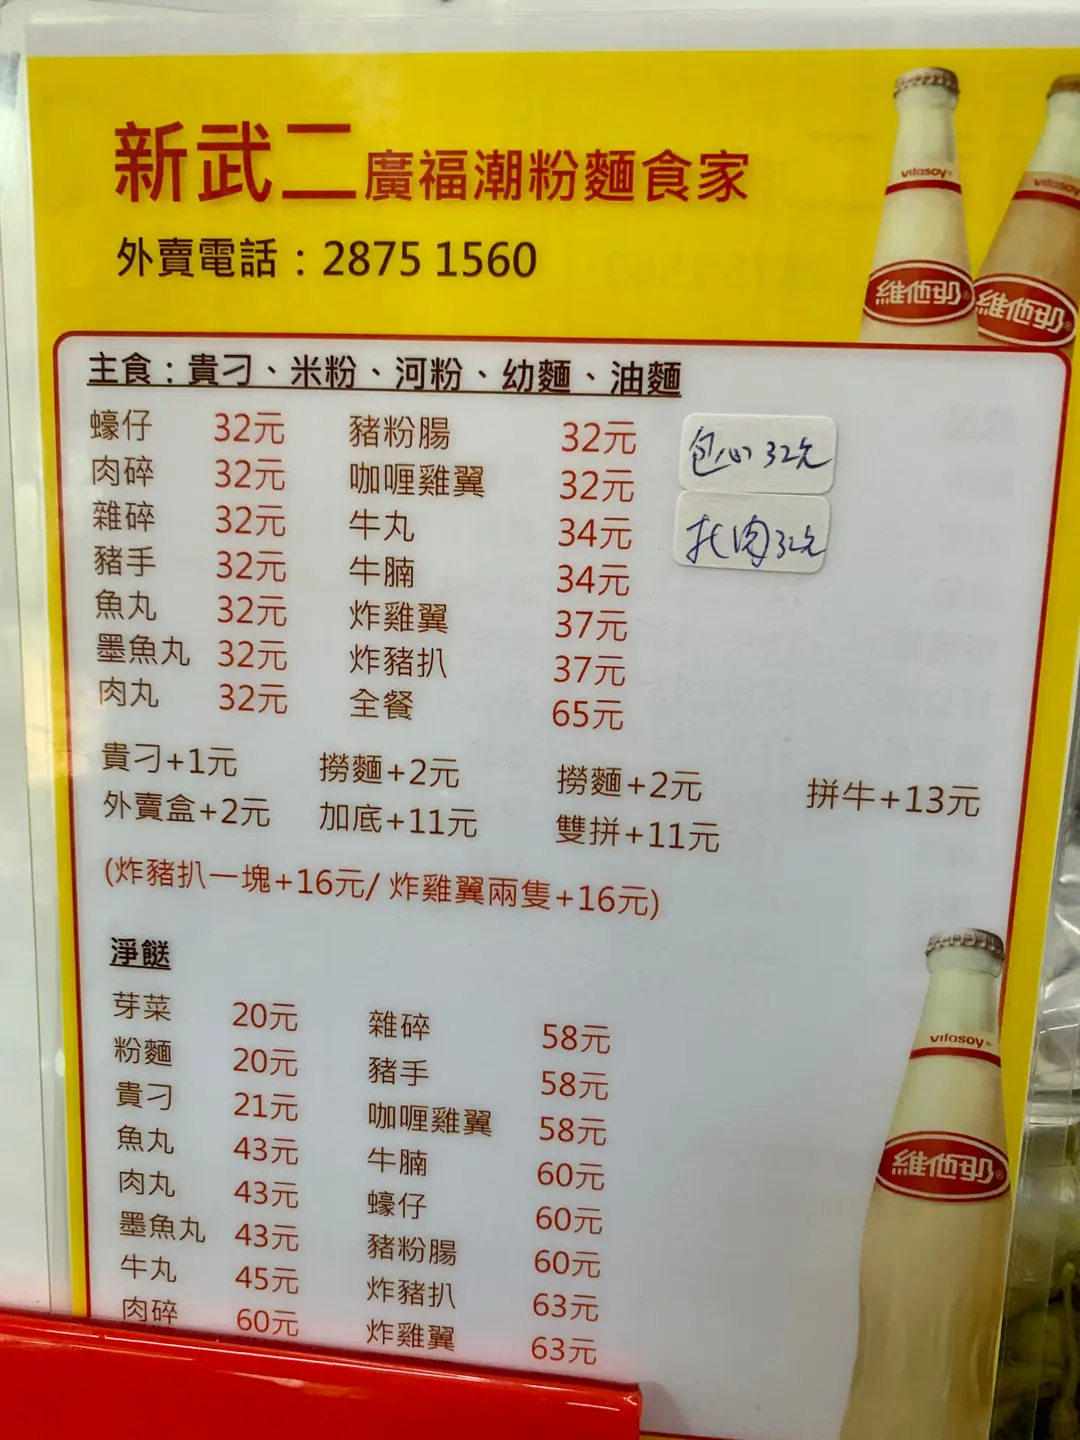 新武二廣福潮粉麵食家
外賣電話：2875 1560
vitasoy
vitasoy
維他奶
維他奶
主食：貴刁、米粉、河粉、幼麵、油麵
蠔仔 32元 豬粉腸 32元 包心 32元
肉碎 32元 咖喱雞翼 32元
雜碎 32元 牛丸 34元 扎肉 32元
豬手 32元 牛腩 34元
魚丸 32元 炸雞翼 37元
墨魚丸 32元 炸豬扒 37元
肉丸 32元 全餐 65元
貴刁+1元 撈麵+2元 撈麵+2元 拼牛+13元
外賣盒+2元 加底+11元 雙拼+11元
(炸豬扒一塊+16元/ 炸雞翼兩隻+16元)
淨餸
芽菜 20元 雜碎 58元
粉麵 20元 豬手 58元
貴刁 21元 咖喱雞翼 58元
魚丸 43元 牛腩 60元
肉丸 43元 蠔仔 60元
墨魚丸 43元 豬粉腸 60元
牛丸 45元 炸豬扒 63元
肉碎 60元 炸雞翼 63元
vitasoy
維他奶